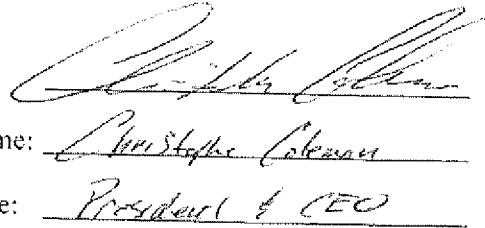 me: Christophe Coleman
e: President & CEO